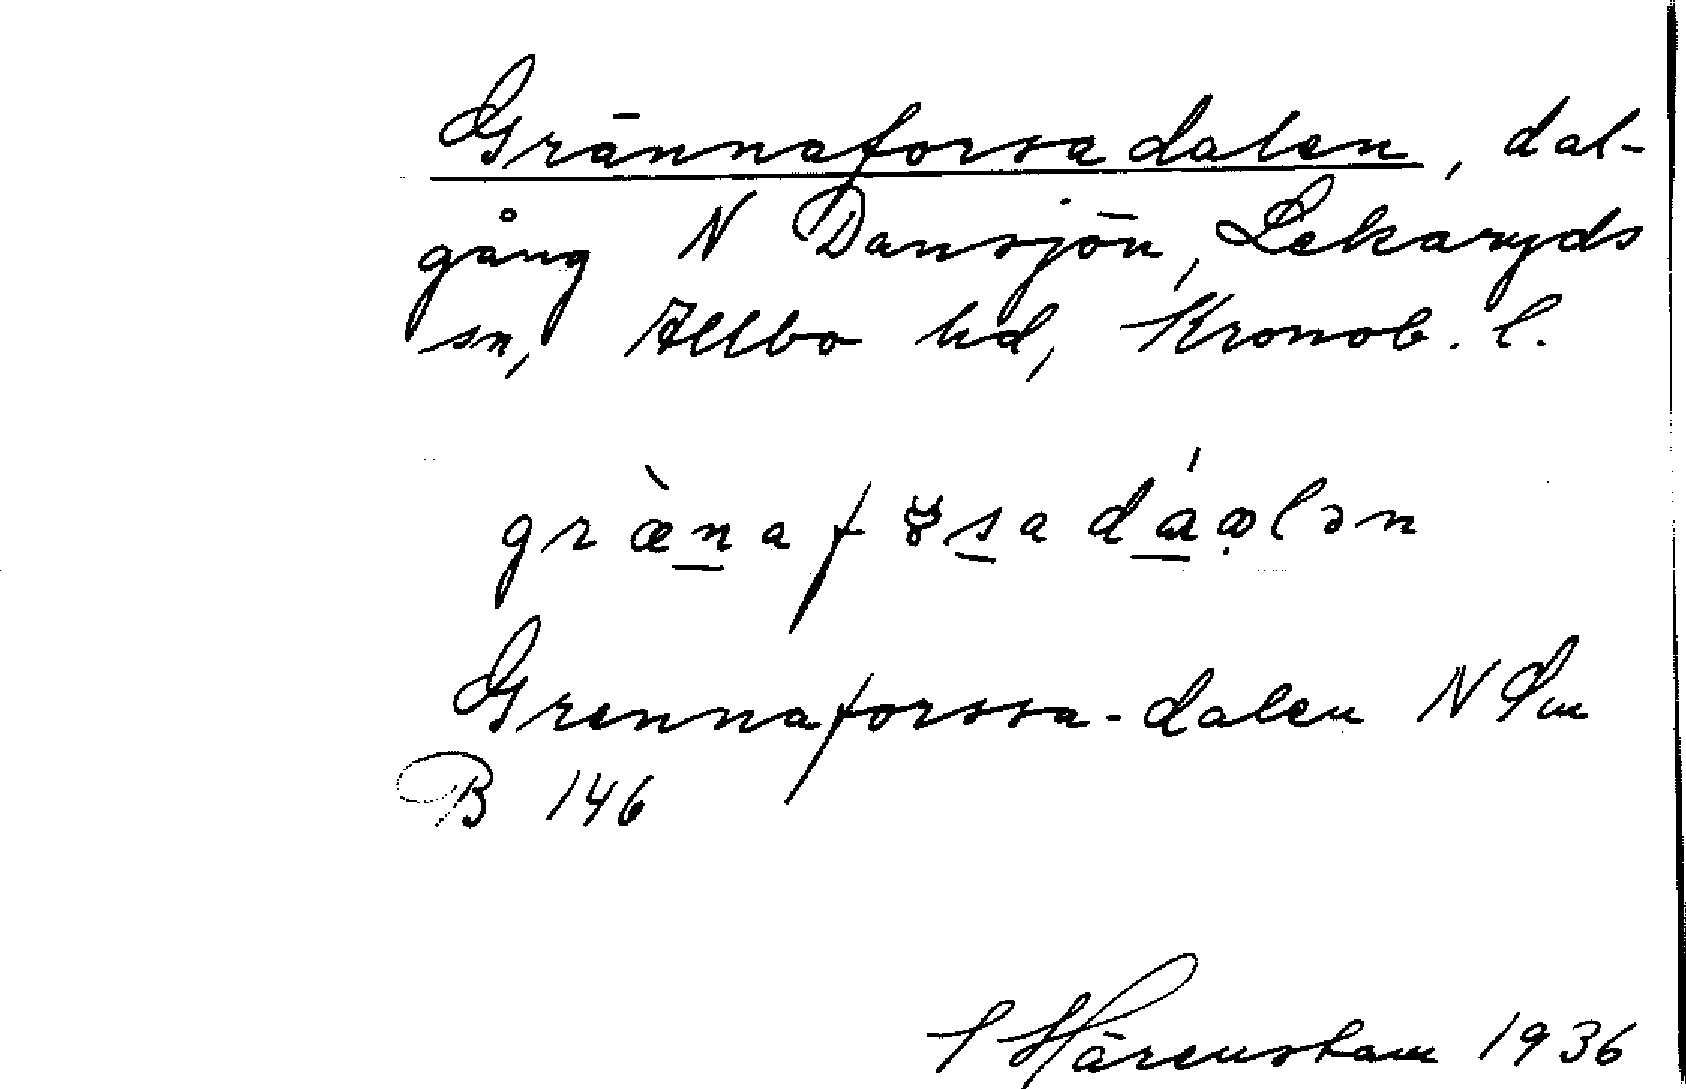 Grännaforsadalen, dal-
gång N Dansjön, Lekaryds
sn, Allbo hd, Kronob. l.
græ̀naf sadáalən
Grennaforssa-dalen N Sm
B 146
Härenstam 1936